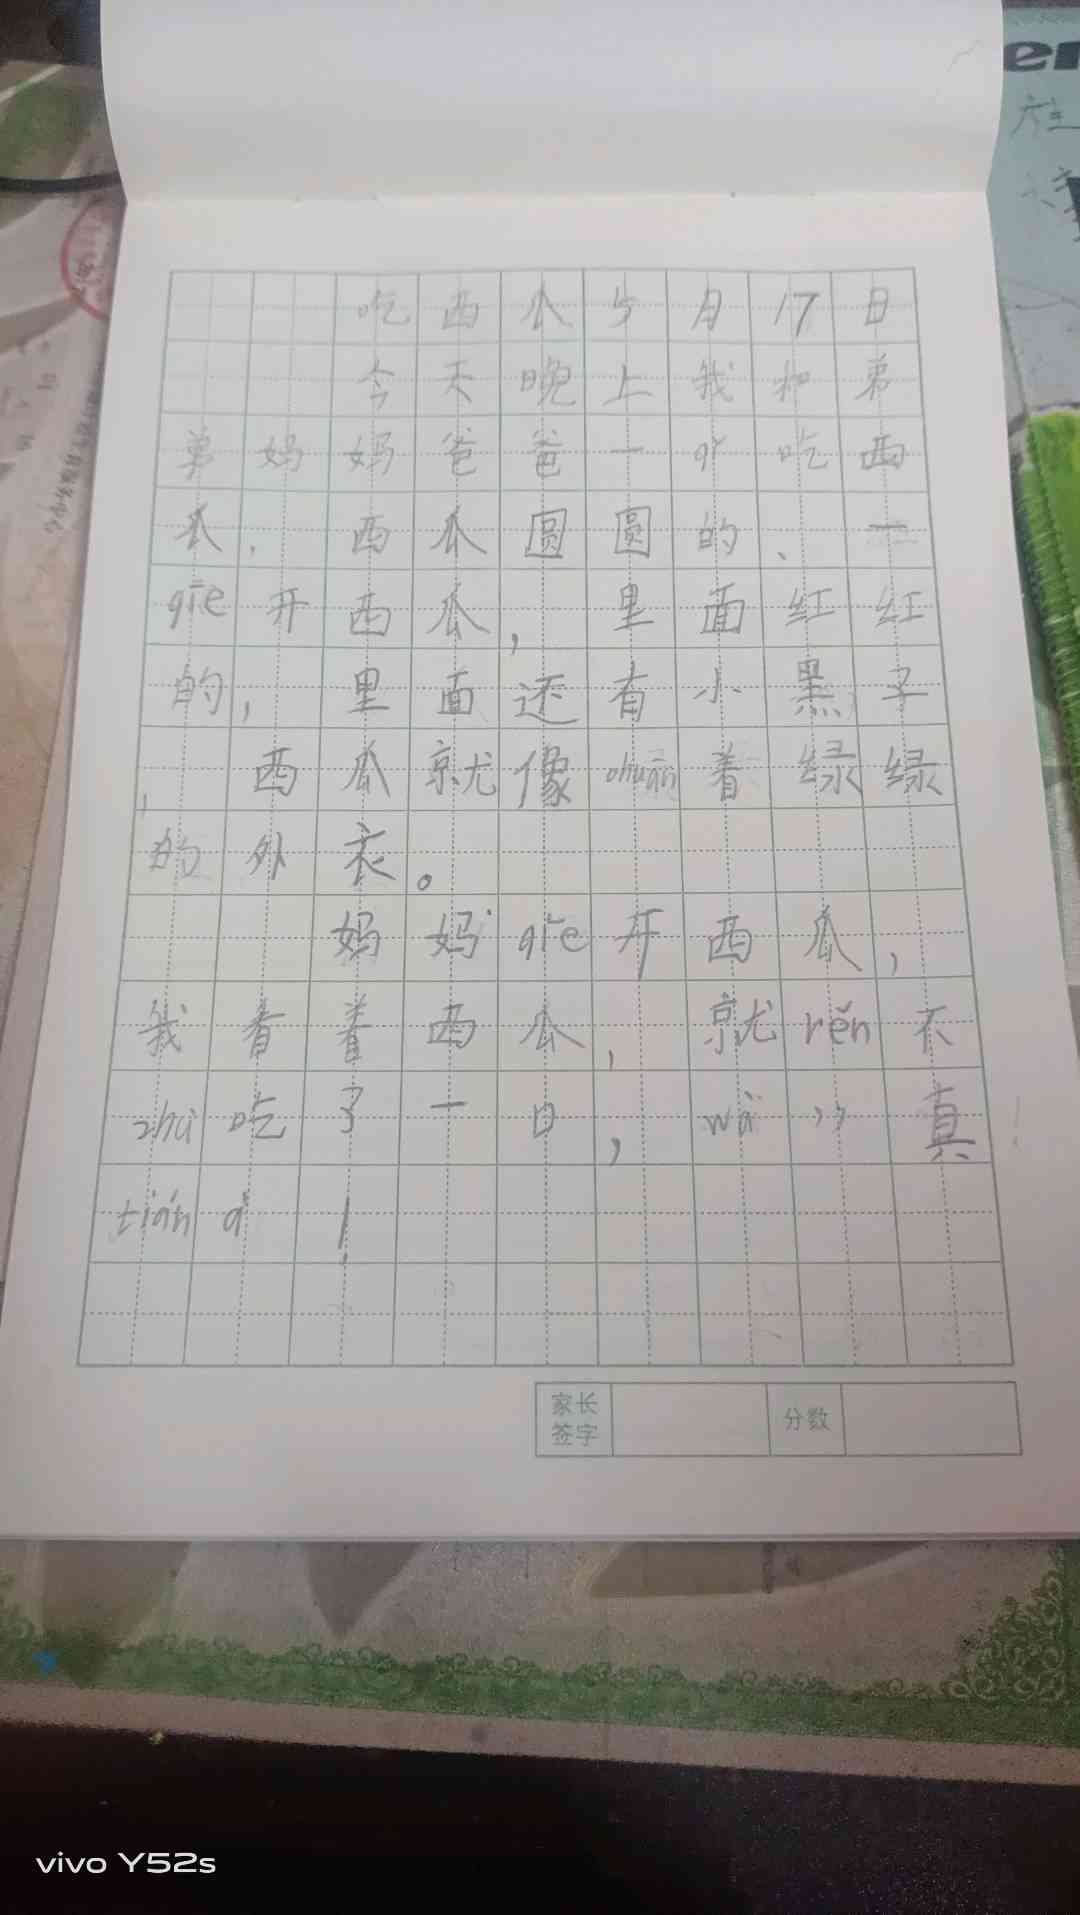 吃西瓜5月17日
今天晚上我和弟
弟妈妈爸爸一qǐ吃西
瓜，西瓜圆圆的、一
qiē开西瓜，里面红红
的，里面还有小黑子
，西瓜就像chuān着绿绿
的外衣。
妈妈qiē开西瓜，
我看着西瓜，就rěn不
zhù吃了一口，wà〃真
tián a！
家长签字
分数
vivo Y52s